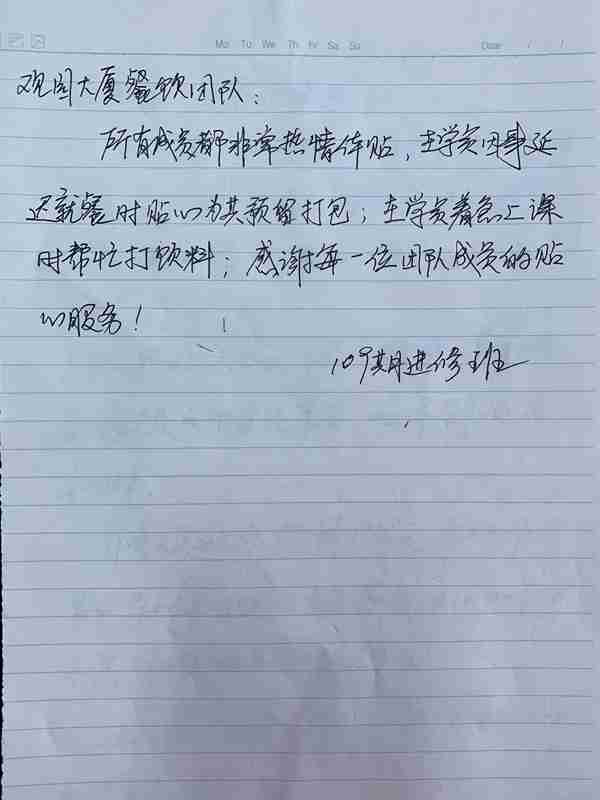 Mo Tu We Th Fr Sa Su Date / /
观园大厦餐饮团队：
所有成员都非常热情体贴，在学员因事延
迟就餐时贴心为其预留打包；在学员着急上课
时帮忙打饮料；感谢每一位团队成员的贴
心服务！
109期进修班